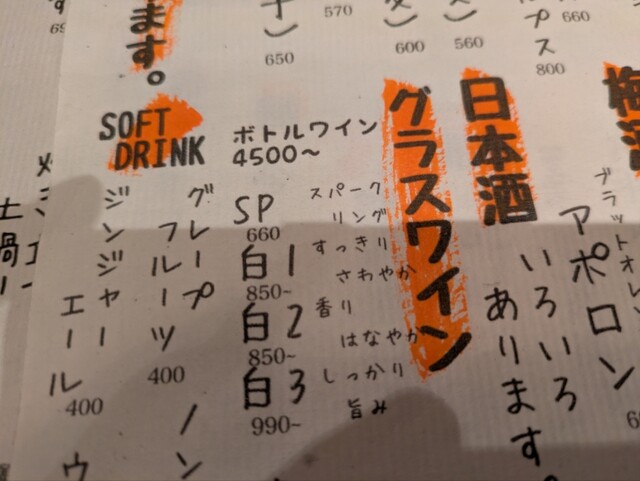 ます。
570
650
600
560
660
800
プス
グラスワイン
日本酒
いろいろ
あります。
アポロン
ボトルワイン
4500~
SP
660
スパーク
リング
白1
850~
すっきり
さわやか
白2
850~
香り
はなやか
白3
990~
しっかり
旨み
SOFT
DRINK
グレープ
フルーツ
400
ジンジャー
エール
400